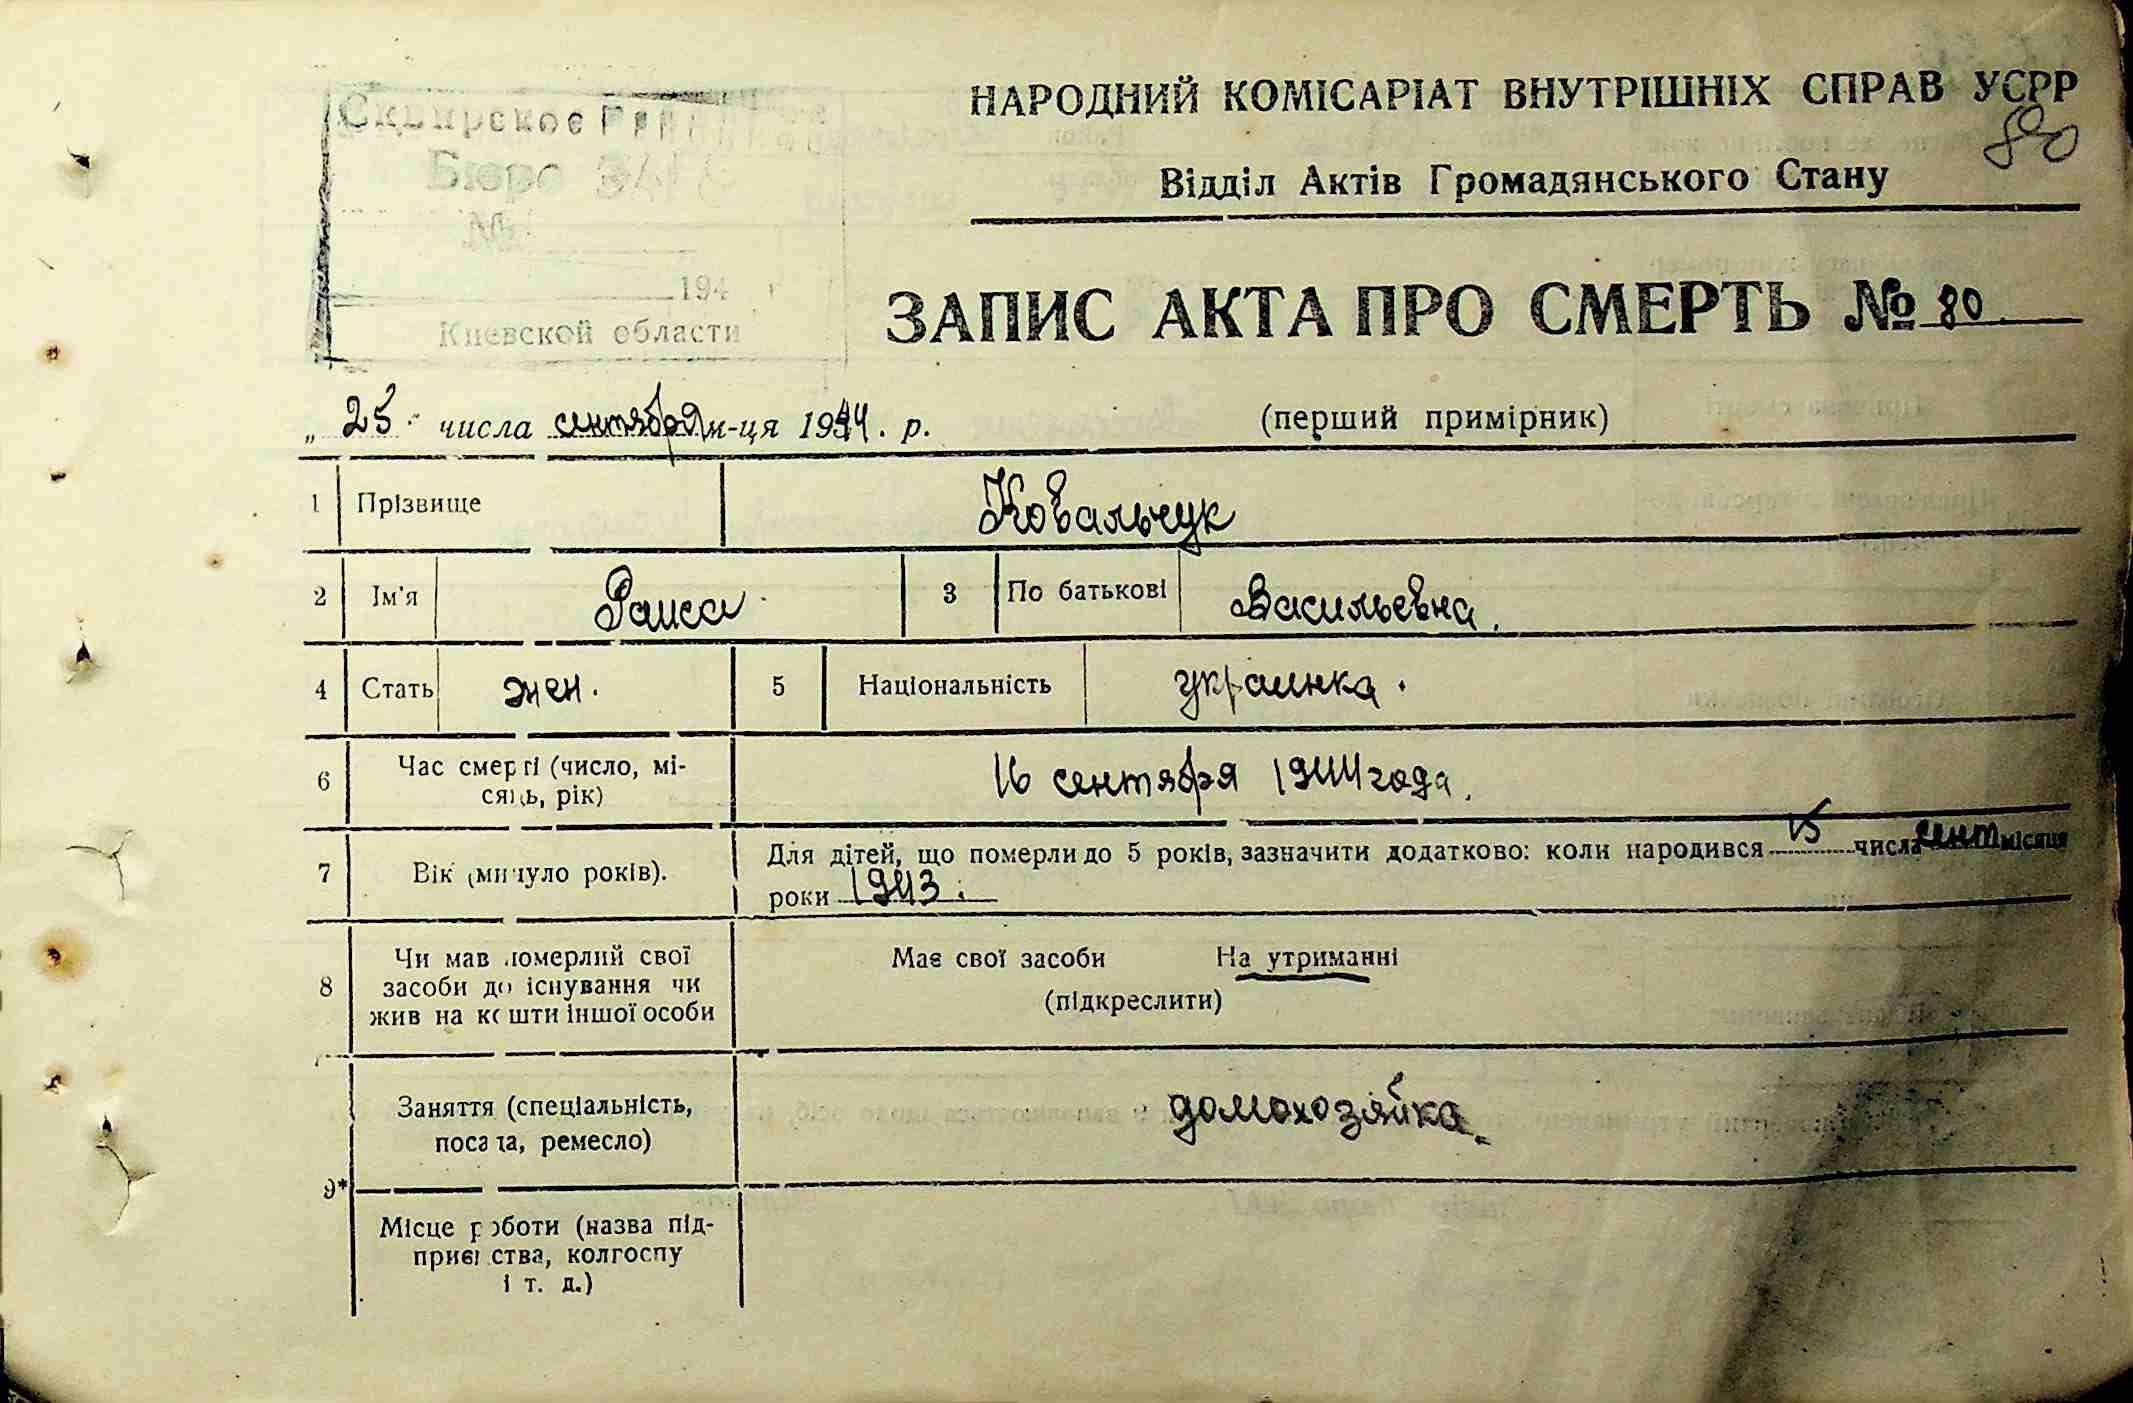 Сквирское Рай
Бюро ЗАГС
№
194
Киевской области
НАРОДНИЙ КОМІСАРІАТ ВНУТРІШНІХ СПРАВ УСРР
80
Відділ Актів Громадянського Стану
ЗАПИС АКТА ПРО СМЕРТЬ № 80
„25" числа сентября м-ця 1944. р. (перший примірник)
1 Прізвище Ковальчук
2 Ім'я Раиса 3 По батькові Васильевна.
4 Стать жен. 5 Національність украинка.
6 Час смерті (число, мі-
сяць, рік) 16 сентября 1944 года.
7 Вік (минуло років). Для дітей, що померли до 5 років, зазначити додатково: коли народився 15 числа сент місяця
роки 1943.
8 Чи мав померлий свої
засоби до існування чи
жив на кошти іншої особи
Має свої засоби На утриманні
(підкреслити)
9*
Заняття (спеціальність,
посада, ремесло) домохозяйка.
Місце роботи (назва під-
приємства, колгоспу
і т. д.)